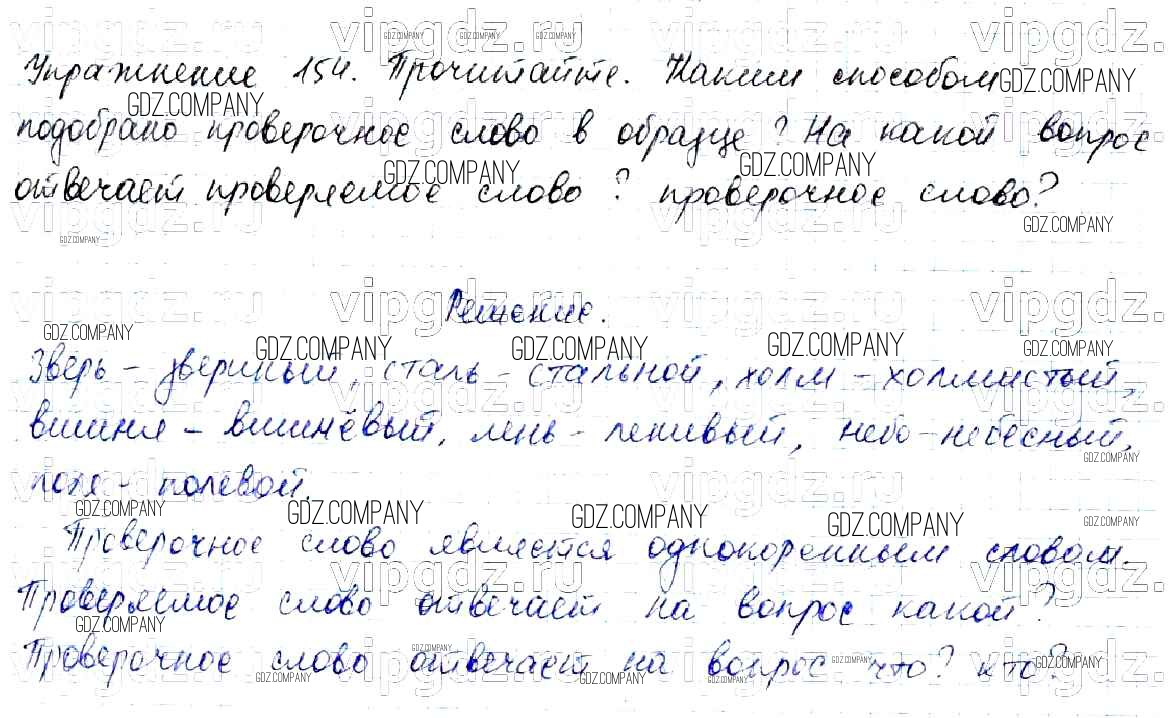 Упражнение 154. Прочитайте. Каким способом
подобрано проверочное слово в образце? На какой вопрос
отвечает проверяемое слово? проверочное слово?
Решение.
Зверь – звериный, сталь – стальной, холм – холмистый,
вишня – вишнёвый, лень – ленивый, небо – небесный,
поле – полевой.
Проверочное слово является однокоренным словом.
Проверяемое слово отвечает на вопрос какой?
Проверочное слово отвечает на вопрос что? кто?